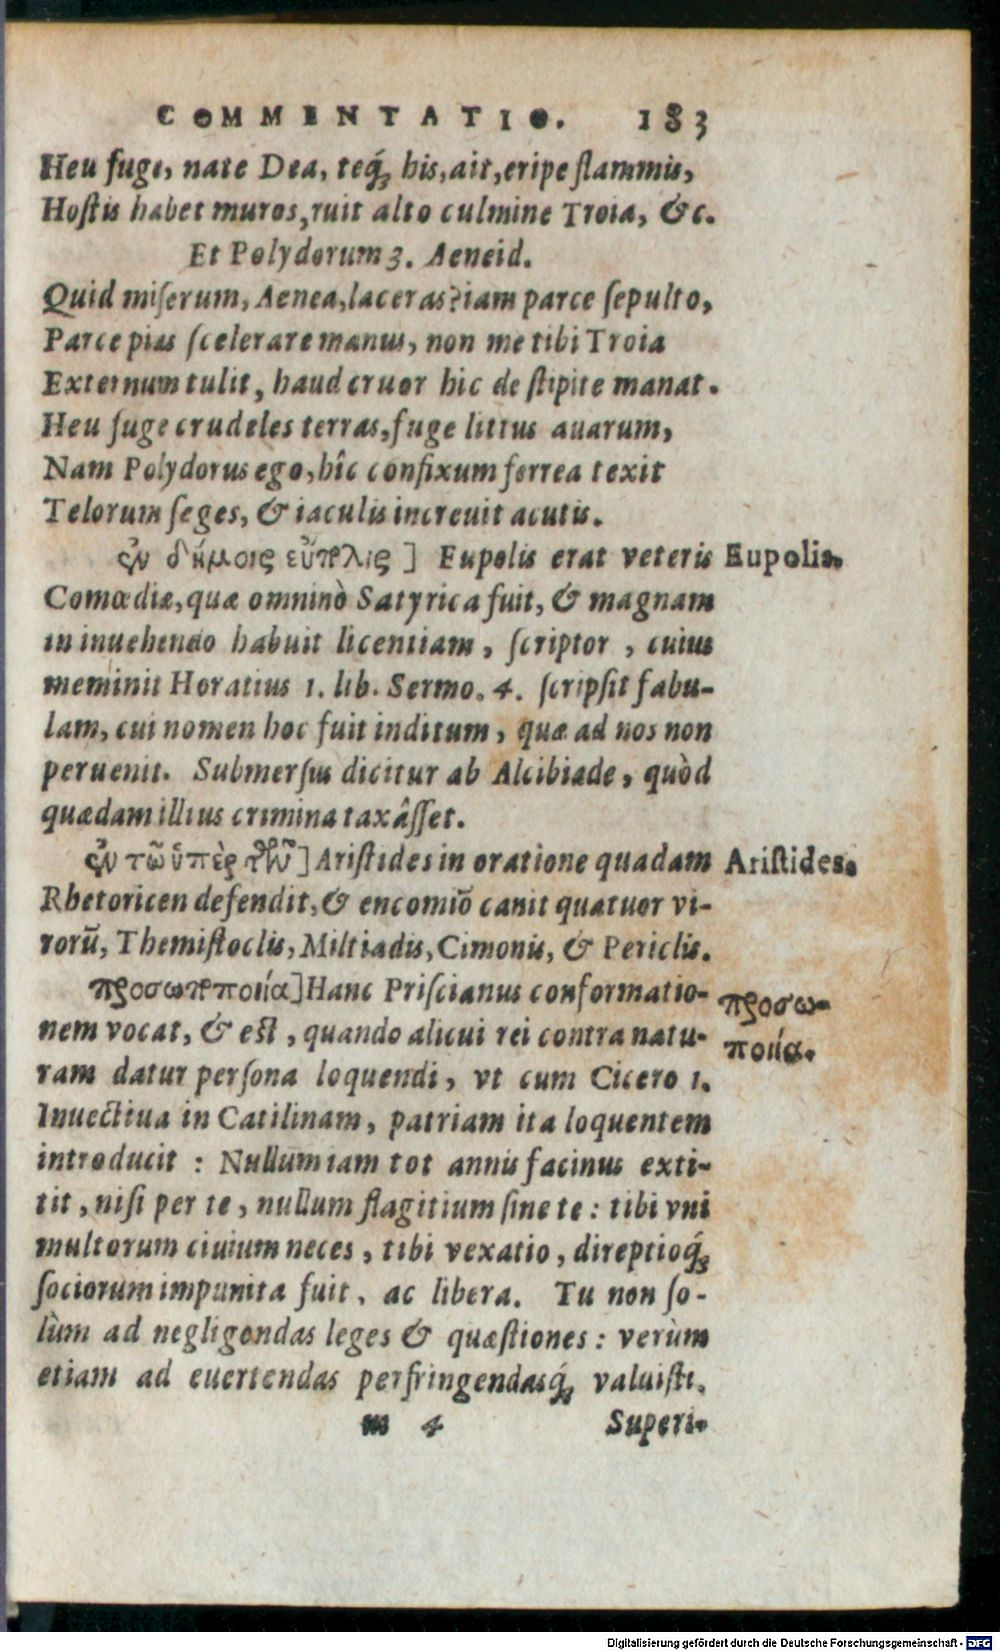 COMMENTATIO. 183
Heu fuge, nate Dea, teq́; his, ait, eripe flammis,
Hostis habet muros, ruit alto culmine Troia, &c.
Et Polydorum 3. Aeneid.
Quid miserum, Aenea, laceras? iam parce sepulto,
Parce pias scelerare manus, non me tibi Troia
Externum tulit, haud cruor hic de stipite manat.
Heu fuge crudeles terras, fuge littus auarum,
Nam Polydorus ego, hîc confixum ferrea texit
Telorum seges, & iaculis increuit acutis.
ἐν δήμοις εὔπολις] Eupolis erat veteris Eupolis.
Comœdiæ, quæ omninò Satyrica fuit, & magnam
in inuehendo habuit licentiam, scriptor, cuius
meminit Horatius 1. lib. Sermo. 4. scripsit fabu-
lam, cui nomen hoc fuit inditum, quæ ad nos non
peruenit. Submersus dicitur ab Alcibiade, quòd
quædam illius crimina taxâsset.
ἐν τῶ ὑπὲρ τῶν] Aristides in oratione quadam Aristides.
Rhetoricen defendit, & encomiō canit quatuor vi-
rorū, Themistoclis, Miltiadis, Cimonis, & Periclis.
προσωποποιία] Hanc Priscianus conformatio- προσω-
nem vocat, & est, quando alicui rei contra natu- ποιία.
ram datur persona loquendi, vt cum Cicero 1.
Inuectiua in Catilinam, patriam ita loquentem
introducit : Nullum iam tot annis facinus exti-
tit, nisi per te, nullum flagitium sine te : tibi vni
multorum ciuium neces, tibi vexatio, direptioq́;
sociorum impunita fuit, ac libera. Tu non so-
lùm ad negligendas leges & quæstiones : verùm
etiam ad euertendas perfringendasq́; valuisti.
m 4 Superi-
Digitalisierung gefördert durch die Deutsche Forschungsgemeinschaft - DFG